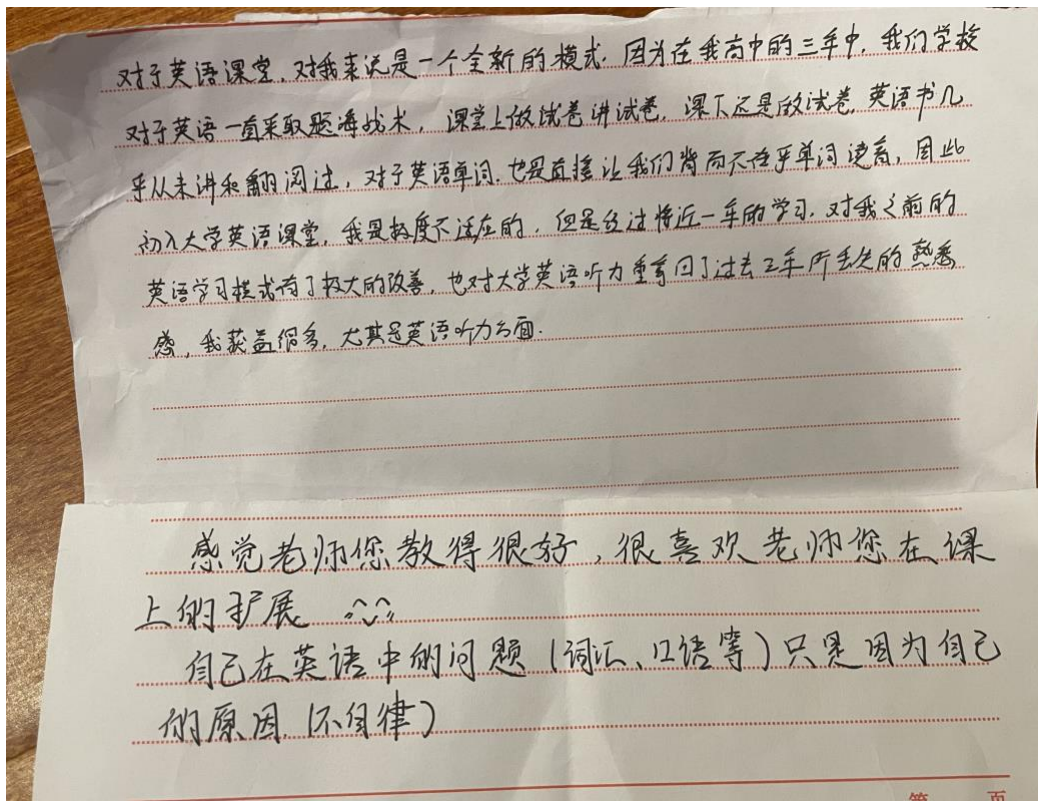 对于英语课堂,对我来说是一个全新的模式.因为在我高中的三年中,我们学校
对于英语一直采取题海战术,课堂上做试卷讲试卷,课下还是做试卷,英语书几
乎从未讲和翻阅过,对于英语单词.也是直接让我们背而不在乎单词读音,因此
初入大学英语课堂,我是极度不适应的,但是经过将近一年的学习,对我之前的
英语学习模式有了极大的改善,也对大学英语听力重拾回了过去三年所丢失的熟悉
感,我获益很多,尤其是英语听力方面.
感觉老师您教得很好,很喜欢老师您在课
上的扩展 ^◡^
自己在英语中的问题(词汇、口语等)只是因为自己
的原因.(不自律)
第 页